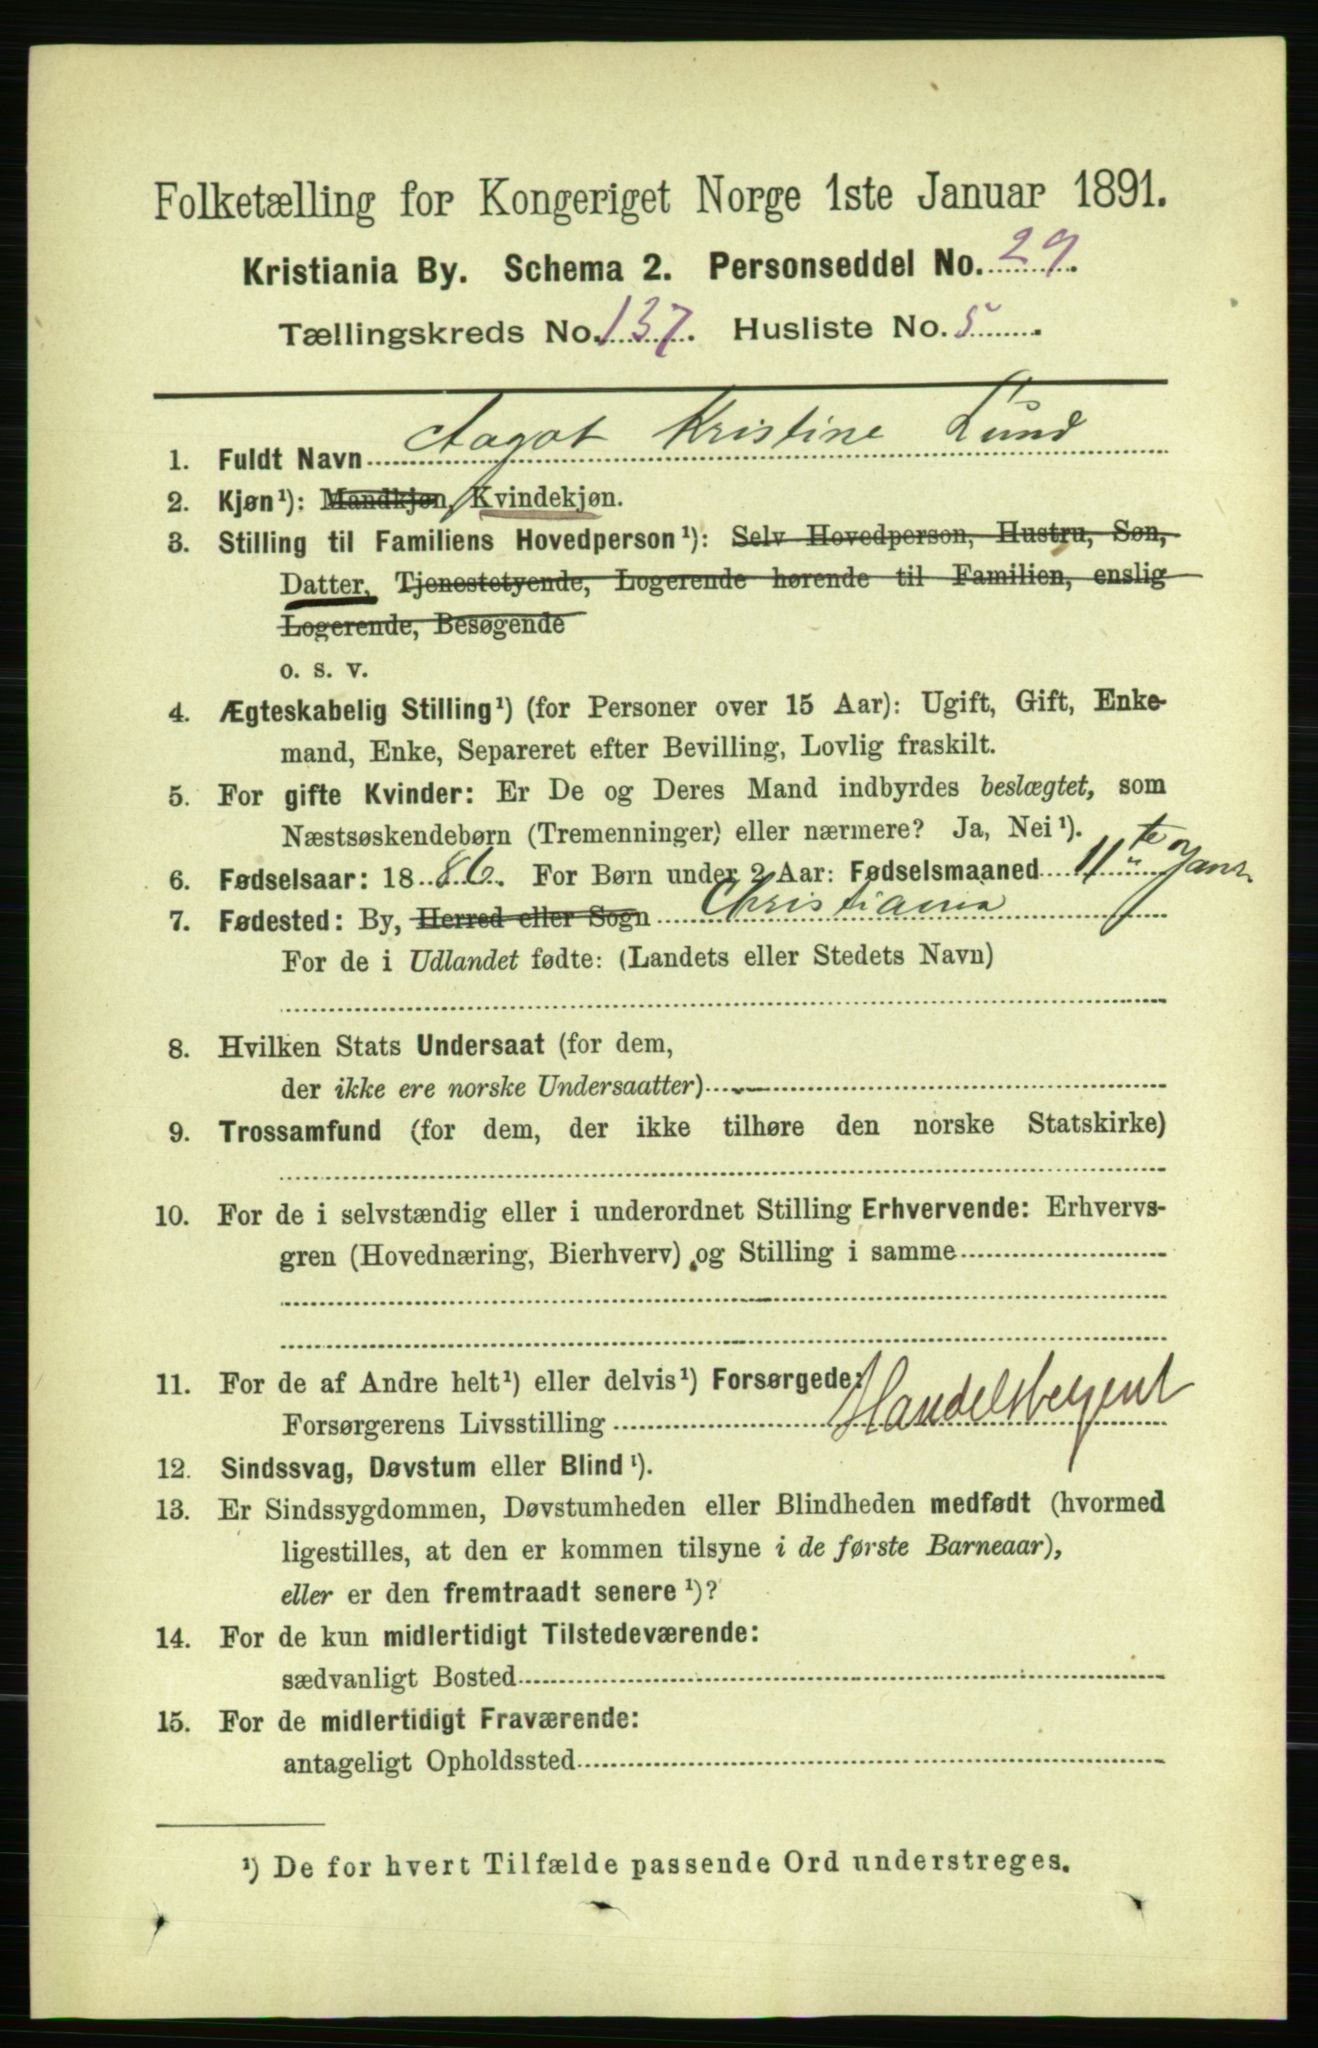 Folketælling for Kongeriget Norge 1ste Januar 1891.
Kristiania By. Schema 2. Personseddel No. 29.
Tællingskreds No. 137. Husliste No. 5.
1. Fuldt Navn Aagot Kristine Lund
2. Kjøn¹): Mandkjøn, Kvindekjøn.
3. Stilling til Familiens Hovedperson¹): Selv Hovedperson, Hustru, Søn,
Datter, Tjenestetyende, Logerende hørende til Familien, enslig
Logerende, Besøgende
o. s. v.
4. Ægteskabelig Stilling¹) (for Personer over 15 Aar): Ugift, Gift, Enke-
mand, Enke, Separeret efter Bevilling, Lovlig fraskilt.
5. For gifte Kvinder: Er De og Deres Mand indbyrdes beslægtet, som
Næstsøskendebørn (Tremenninger) eller nærmere? Ja, Nei¹).
6. Fødselsaar: 1886. For Børn under 2 Aar: Fødselsmaaned 11te Janr.
7. Fødested: By, Herred eller Sogn Christiania
For de i Udlandet fødte: (Landets eller Stedets Navn)
8. Hvilken Stats Undersaat (for dem,
der ikke ere norske Undersaatter)
9. Trossamfund (for dem, der ikke tilhøre den norske Statskirke)
10. For de i selvstændig eller i underordnet Stilling Erhvervende: Erhvervs-
gren (Hovednæring, Bierhverv) og Stilling i samme
11. For de af Andre helt¹) eller delvis¹) Forsørgede:
Forsørgerens Livsstilling
12. Sindssvag, Døvstum eller Blind¹).
13. Er Sindssygdommen, Døvstumheden eller Blindheden medfødt (hvormed
ligestilles, at den er kommen tilsyne i de første Barneaar),
eller er den fremtraadt senere¹)?
14. For de kun midlertidigt Tilstedeværende:
sædvanligt Bosted
15. For de midlertidigt Fraværende:
antageligt Opholdssted
¹) De for hvert Tilfælde passende Ord understreges.